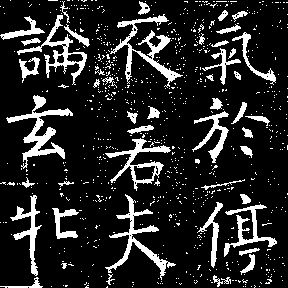 氣於停
夜若夫
論玄牝